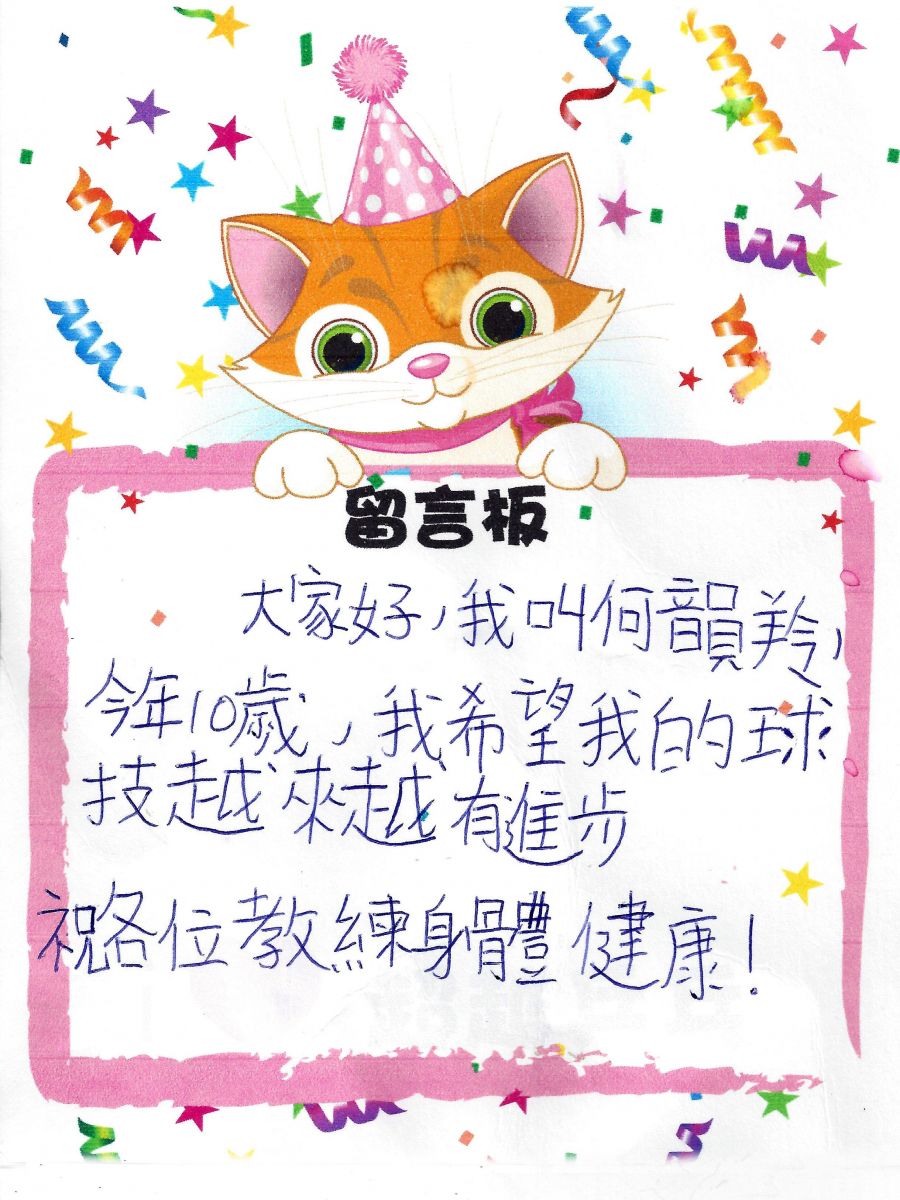 留言板
大家好，我叫何韻羚，
今年10歲，我希望我的球
技越來越有進步
祝各位教練身體健康！